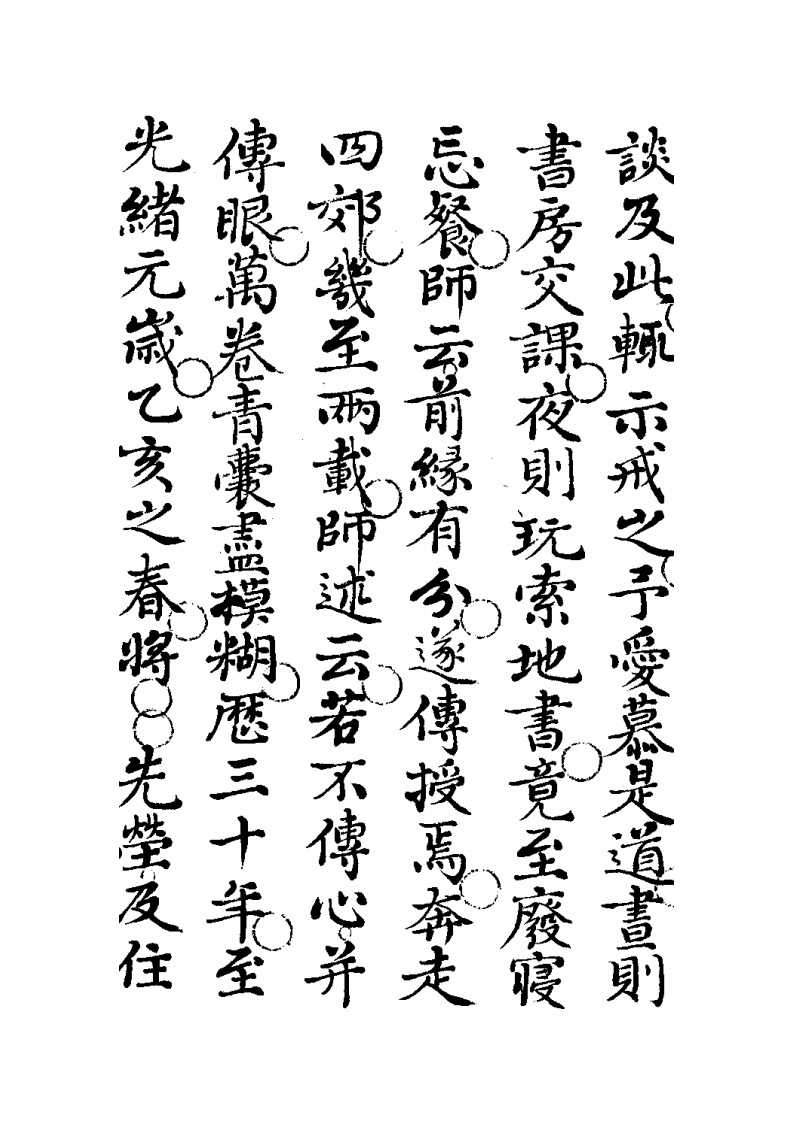 談及此輒示戒之予愛慕是道晝則
書房交課夜則玩索地書竟至廢寢
忘餐師云前緣有分遂傳授焉奔走
四郊幾至兩載師述云若不傳心并
傳眼萬卷青囊盡模糊歷三十年至
光緒元歲乙亥之春將先塋及住